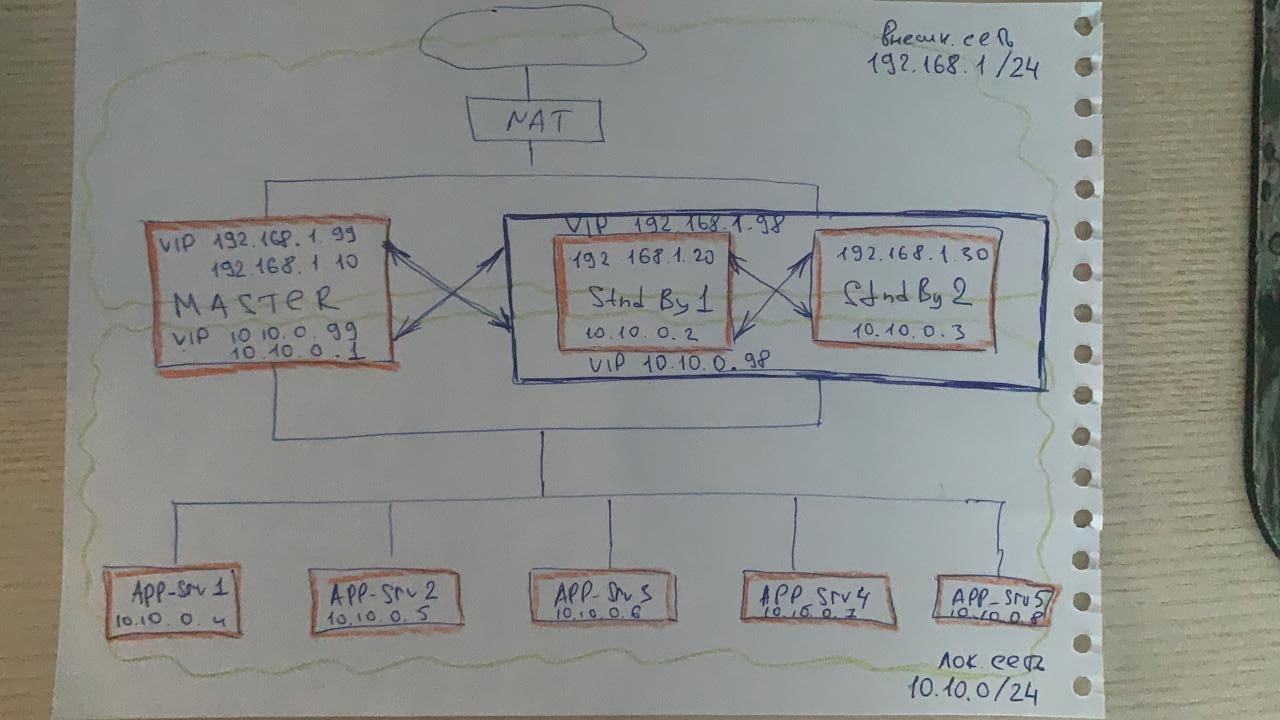 Внешн. сеть
192.168.1/24
NAT
VIP 192.168.1.99
192.168.1 10
MASTER
VIP 10.10.0.99
10.10.0.1
VIP 192.168.1.98
192 168.1.20
Stnd By 1
10.10.0.2
192.168.1.30
Stnd By 2
10.10.0.3
VIP 10.10.0.98
APP-Srv 1
10.10.0.4
APP-Srv 2
10.10.0.5
APP-Srv 3
10.10.0.6
APP Srv 4
10.10.0.7
APP_Srv5
10.10.0.8
Лок. сеть
10.10.0/24